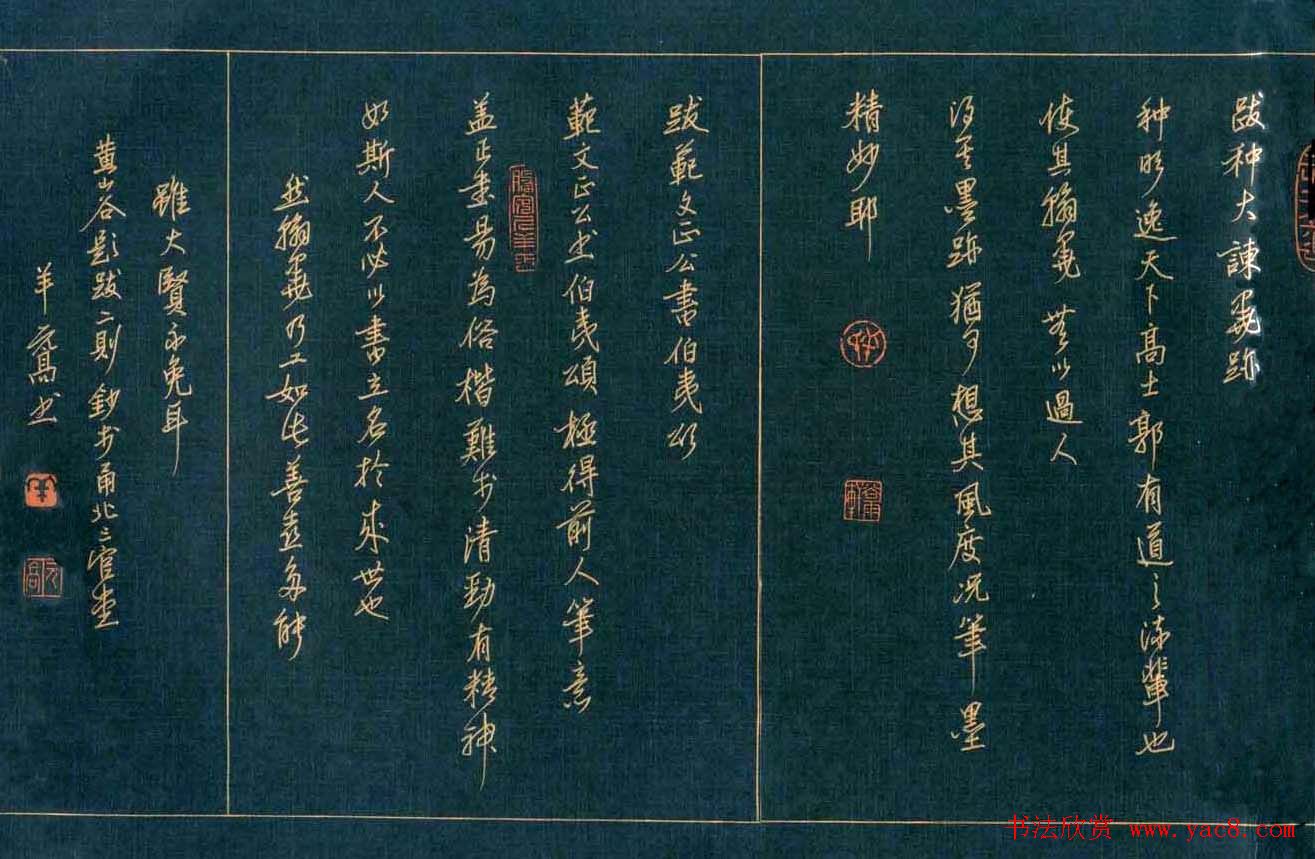 跋种大諫墨跡
种明逸天下高士郭有道之流輩也
使其翰墨無以過人
得其墨跡猶可想其風度況筆墨
精妙耶
跋範文正公書伯夷頌
範文正公书伯夷頌極得前人筆意
盖正書易為俗楷難於清勁有精神
如斯人不必以書立名於來世也
然翰墨乃工如此善多能
雖大賢不免耳
黄山谷題跋二則鈔於甬北三官堂
羊元高书
书法欣赏 www.yac8.com